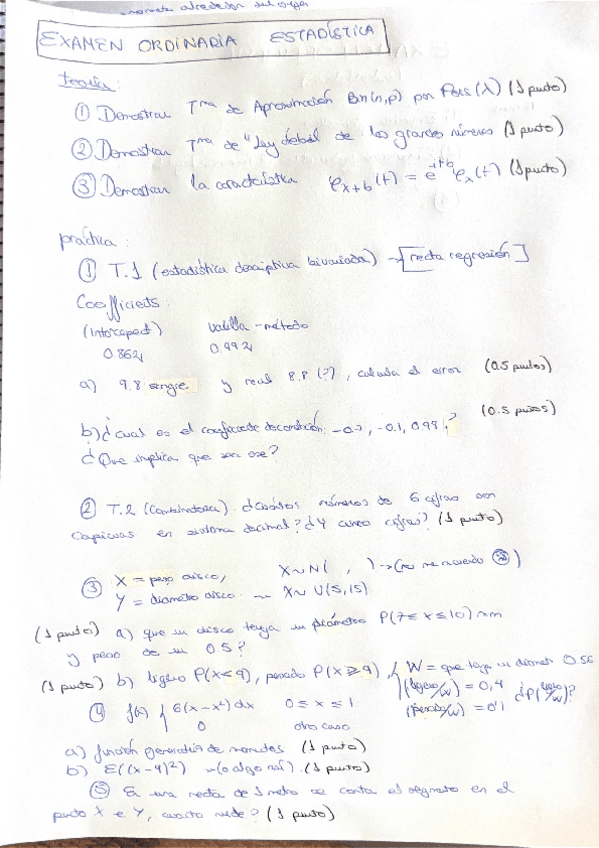 moneda alrededor del
EXAMEN ORDINARIA ESTADÍSTICA
teoría:
① Demostrar Tma de Aproximación Bin(n,p) por Pois(λ) (1 punto)
② Demostrar Tma de "Ley débil de los grandes números (1 punto)
③ Demostrar la característica φx+b(t) = e^itb φx(t) (1 punto)
práctica:
① T.1 (estadística descriptiva bivariada) → [recta regresión]
Coefficients.
(Intercept) varilla-método
0.862 0.992
a) 9.8 sangre y real 8.8 (?), calcula el error (0.5 puntos)
(0.5 puntos)
b) ¿cual es el coeficiente de correlación: -0.1, 0.98?
¿Que implica que sea ese?
② T.2 (Combinatoria). ¿Cuántos números de 6 cifras son
capicuas en sistema decimal? ¿Y cinco cifras? (1 punto)
③ X = peso disco, X~N( , ) → (no me acuerdo)
Y = diametro disco X~U(5,15)
(1 punto) a) que un disco tenga un diámetro P(7≤x≤10) mm
y peso de 0.5?
(1 punto) b) ligero P(x<9), pesado P(X≥9), W = que tenga un diametr 0.56
(ligero/w) = 0,4 ¿P(ligero/w)?
(pesado/w) = 0'1
④ f(x) { 6(x-x²)dx 0≤x≤1
0 otro caso
a) función generatriz de momentos (1 punto)
b) E((x-4)²) ~(o algo así). (1 punto)
⑤ En una recta de 1 metro se corta el segmento en el
punto X e Y, cuanto mide? (1 punto)